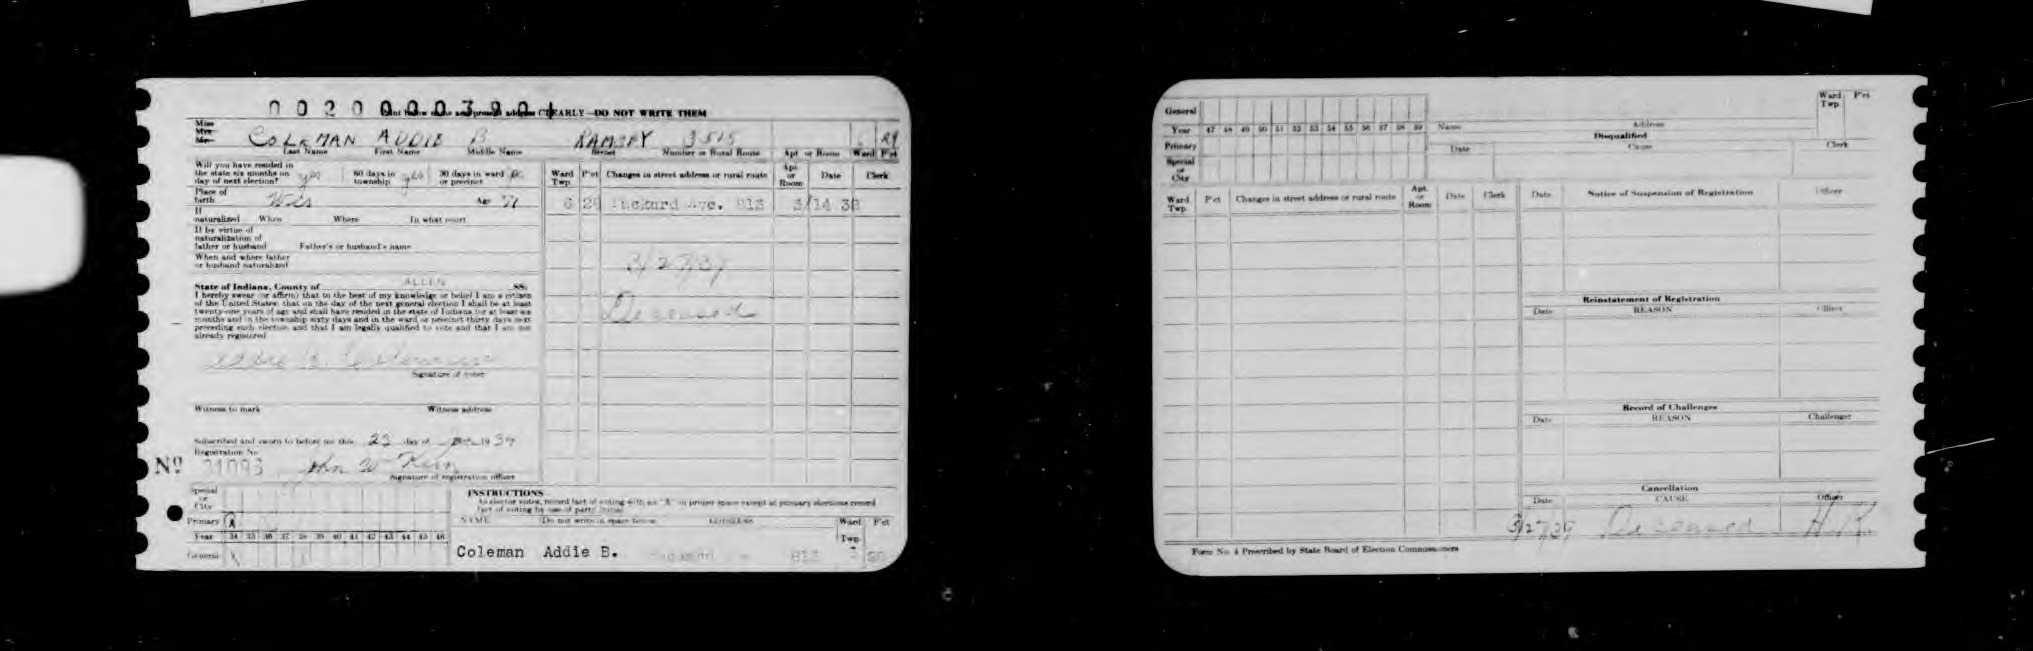 0020000390
Print below name and present address CLEARLY—DO NOT WRITE THEM
Miss
Mrs.
Mr.
COLEMAN ADDIE B RAMSEY 3515 29
Last Name First Name Middle Name Street Number or Rural Route Apt or Room Ward P'ct
Will you have resided in the state six months on day of next election? yes 60 days in township yes 30 days in ward or precinct
Place of birth Wis Age 71
If naturalized When Where In what court
If by virtue of naturalization of father or husband Father's or husband's name
When and where father or husband naturalized
State of Indiana, County of ALLEN SS:
I hereby swear (or affirm) that to the best of my knowledge or belief I am a citizen
of the United States, that on the day of the next general election I shall be at least
twenty-one years of age and shall have resided in the state of Indiana for at least six
months and in the township sixty days and in the ward or precinct thirty days next
preceding such election and that I am legally qualified to vote and that I am not
already registered
Addie B. Coleman
Signature of voter
Witness to mark Witness address
Subscribed and sworn to before me this 23 day of 19 34
Registration No
Nº 21093 John W Kern
Signature of registration officer
Special or City
Primary
Year 34 35 36 37 38 39 40 41 42 43 44 45 46
General
Ward Twp. P'ct Changes in street address or rural route Apt. or Room Date Clerk
6 29 Packard Ave. 813 3/14 38
3/27/39
Deceased
INSTRUCTIONS
As elector votes, record fact of voting with an "X" in proper space except at primary elections record
fact of voting by use of party initial
NAME (Do not write in space below) ADDRESS Ward Twp. P'ct
Coleman Addie B. 813
General
Year 47 48 49 50 51 52 53 54 55 56 57 58 59
Primary
Special or City
Name Address Ward Twp. P'ct
Disqualified
Date Cause Clerk
Ward Twp. P'ct Changes in street address or rural route Apt. or Room Date Clerk
Date Notice of Suspension of Registration Officer
Reinstatement of Registration
Date REASON Officer
Record of Challenges
Date REASON Challenger
Cancellation
Date CAUSE Officer
3/27/39 Deceased H.K.
Form No 4 Prescribed by State Board of Election Commissioners